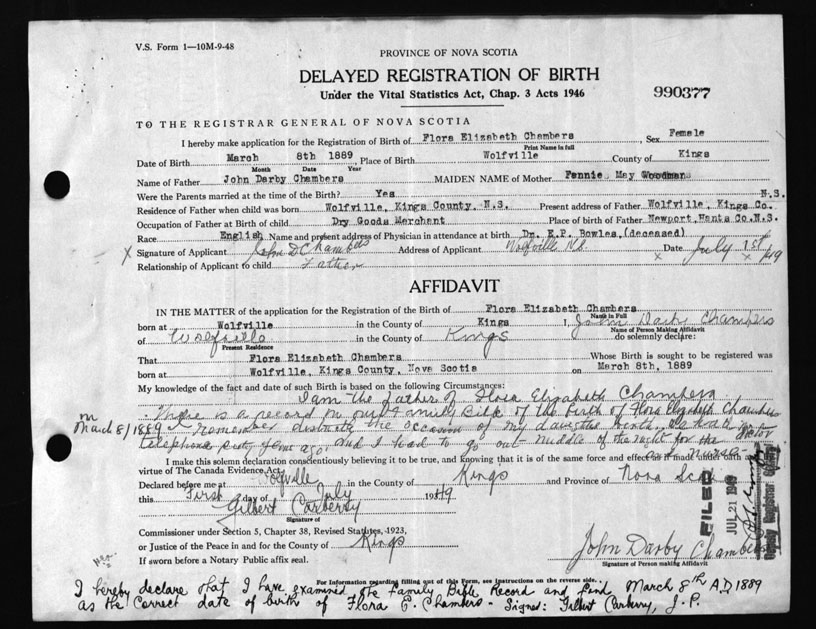 V.S. Form 1—10M-9-48
PROVINCE OF NOVA SCOTIA
DELAYED REGISTRATION OF BIRTH
Under the Vital Statistics Act, Chap. 3 Acts 1946
990377
TO THE REGISTRAR GENERAL OF NOVA SCOTIA
I hereby make application for the Registration of Birth of Flora Elizabeth Chambers, Sex Female
Print Name in full
Date of Birth March 8th 1889, Place of Birth Wolfville County of Kings
Month Date Year
Name of Father John Darby Chambers MAIDEN NAME of Mother Fannie May Woodman
Were the Parents married at the time of Birth? Yes N.S.
Residence of Father when child was born Wolfville, Kings County, N.S. Present address of Father Wolfville, Kings Co.
Occupation of Father at Birth of child Dry Goods Merchant Place of birth of Father Newport, Hants Co. N.S.
Race English Name and present address of Physician in attendance at birth Dr. E.P. Bowles, (deceased)
X Signature of Applicant John D Chambers Address of Applicant Wolfville N.S. Date July 1st /49
X X
Relationship of Applicant to child Father
AFFIDAVIT
IN THE MATTER of the application for the Registration of the Birth of Flora Elizabeth Chambers
Name in Full
born at Wolfville in the County of Kings I, John Darby Chambers
Name of Person Making Affidavit
of Wolfville in the County of Kings do solemnly declare:
Present Residence
That Flora Elizabeth Chambers Whose Birth is sought to be registered was
born at Wolfville, Kings County, Nova Scotia on March 8th, 1889
My knowledge of the fact and date of such Birth is based on the following Circumstances:
I am the father of Flora Elizabeth Chambers
There is a record in our Family Bible of the birth of Flora Elizabeth Chambers
on March 8/1889 I remember distinctly the occasion of my daughter's birth.
telephone sixty years ago, and I had to go out middle of the night for the doctor
and nurse
I make this solemn declaration conscientiously believing it to be true, and knowing that it is of the same force and effect as if made under oath
virtue of The Canada Evidence Act.
Declared before me at Wolfville in the County of Kings and Province of Nova Scotia
this First day of July 1949
Gilbert Carberry
Signature of
Commissioner under Section 5, Chapter 38, Revised Statutes, 1923,
or Justice of the Peace in and for the County of Kings
If sworn before a Notary Public affix seal.
FILED
JUL 21 1949
Deputy Registrar General
John Darby Chambers
Signature of Person making Affidavit
For Information regarding filling out of this Form, see instructions on the reverse side.
I hereby declare that I have examined the Family Bible Record and find March 8th A.D. 1889
as the correct date of birth of Flora E. Chambers - Signed: Gilbert Carberry, J.P.